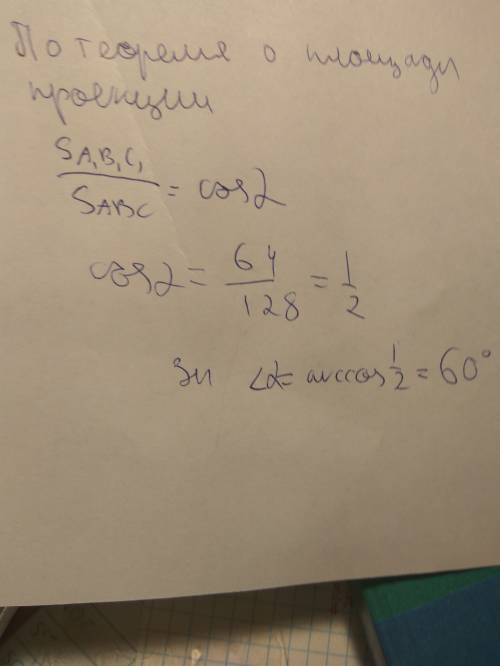 По теореме о площади
проекции
S_{A₁B₁C₁} / S_{ABC} = cos α
cos α = 64/128 = 1/2
Зн ∠α = arccos 1/2 = 60°